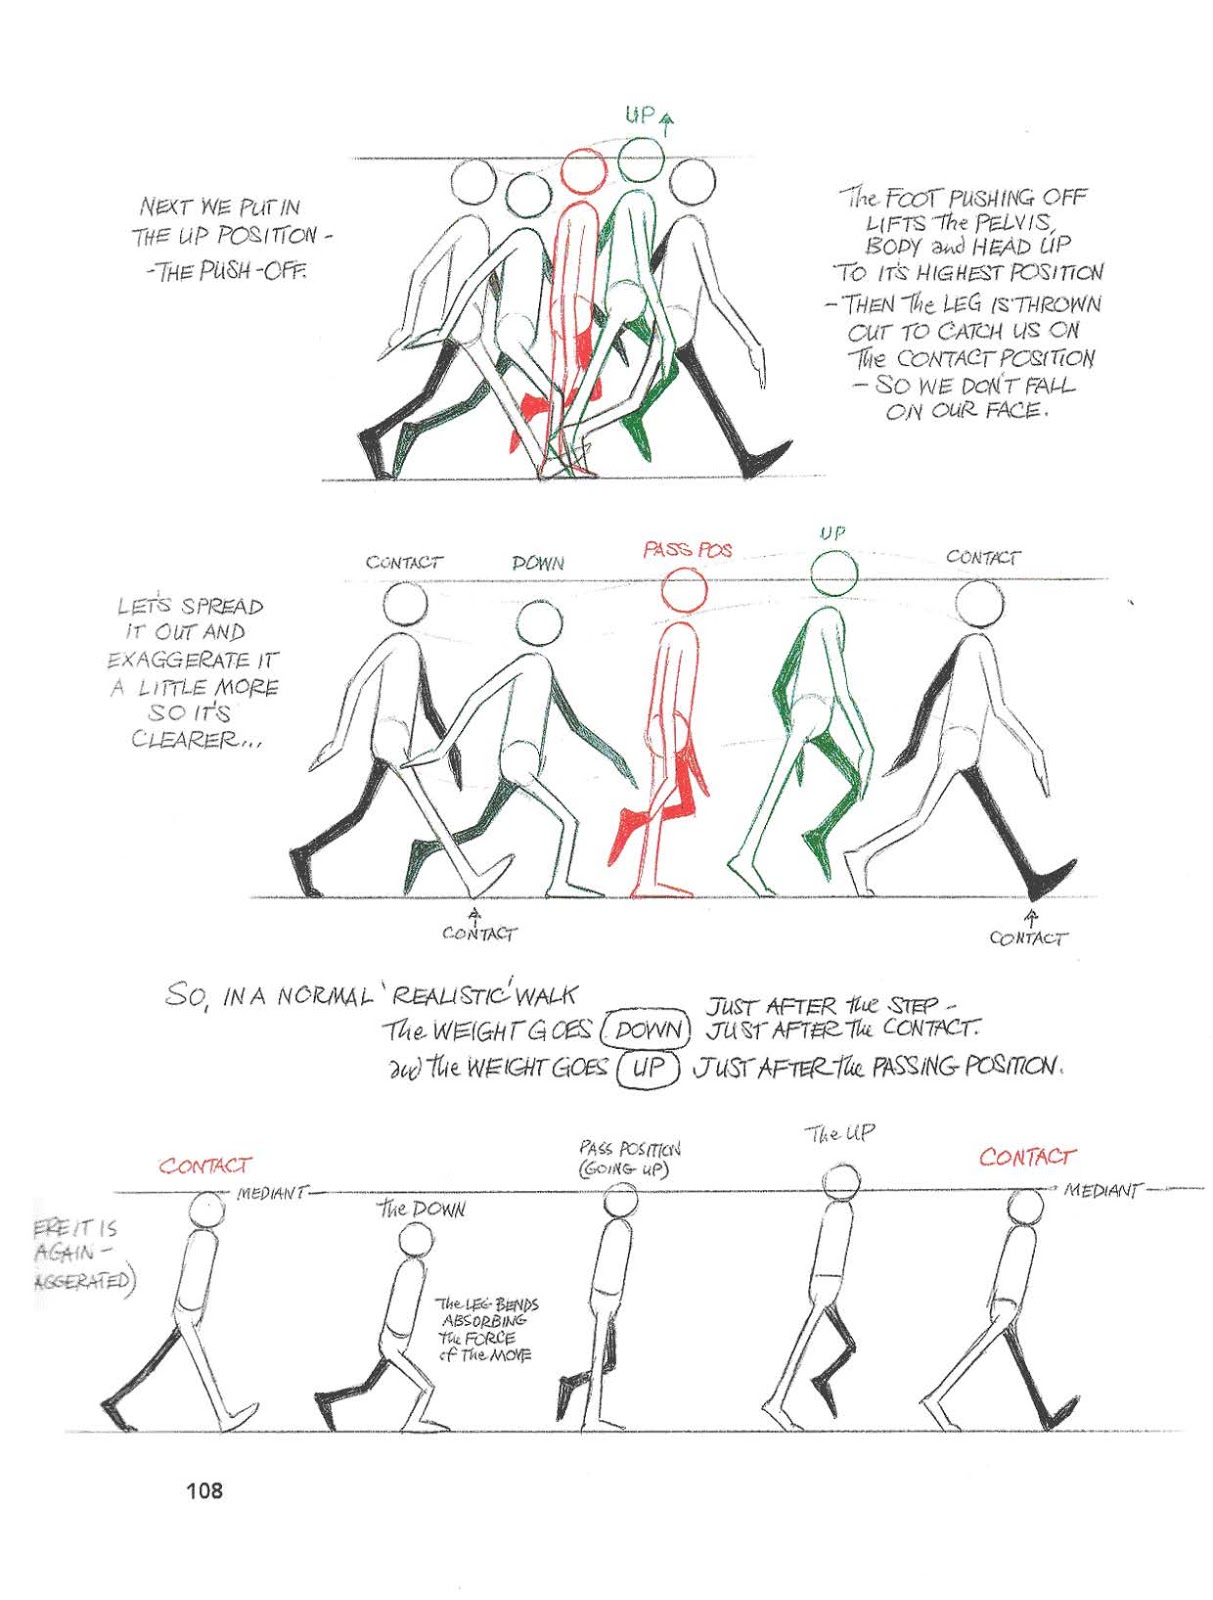 UP
NEXT WE PUT IN
THE UP POSITION -
- THE PUSH-OFF.
The FOOT PUSHING OFF
LIFTS The PELVIS,
BODY and HEAD UP
TO IT'S HIGHEST POSITION
- THEN The LEG IS THROWN
OUT TO CATCH US ON
The CONTACT POSITION
- SO WE DON'T FALL
ON OUR FACE.
CONTACT
DOWN
PASS POS
UP
CONTACT
LET'S SPREAD
IT OUT AND
EXAGGERATE IT
A LITTLE MORE
SO IT'S
CLEARER...
CONTACT
CONTACT
SO, IN A NORMAL 'REALISTIC' WALK
The WEIGHT GOES DOWN JUST AFTER the STEP -
JUST AFTER The CONTACT.
and the WEIGHT GOES UP JUST AFTER the PASSING POSITION.
CONTACT
MEDIANT
the DOWN
PASS POSITION
(GOING UP)
The UP
CONTACT
MEDIANT
ERE IT IS
AGAIN -
AGGERATED)
The LEG BENDS
ABSORBING
the FORCE
of The MOVE
108